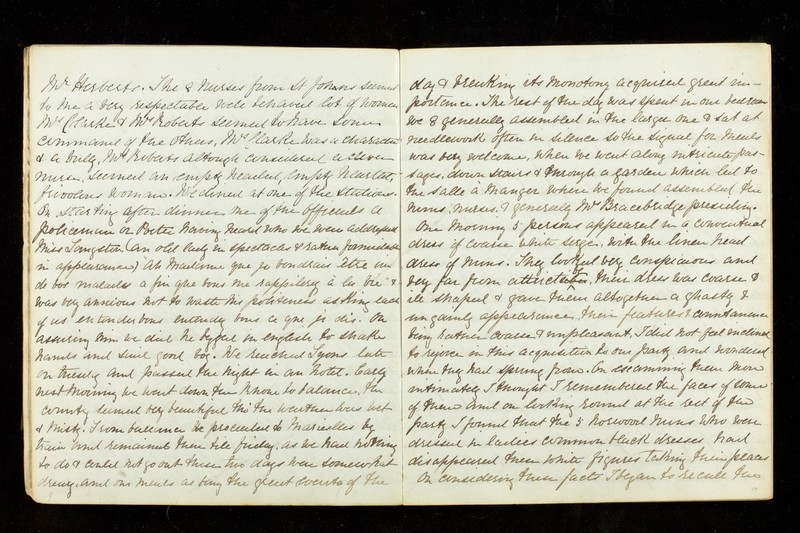 Mr Herberts. The 8 Nurses from St Johns seemed
to me a very respectable well behaved lot of women
Mrs Clarke & Mrs Roberts seemed to have some
command of the others, Mrs Clarke was a character
& a bully, Mrs Roberts although considered a clever
nurse seemed an empty headed, empty hearted,
frivolous woman. We dined at one of the stations.
On starting after dinner one of the officials a
policeman or Porter having heard who we were addressed
Miss Langston (an old lady in spectacles & rather formidable
in appearance) Ah Madame que je voudrais être un
de vos malades a fin que vous me rappeliez à la vie &
was very anxious not to waste his politeness asking each
of us entendez vous entendez vous ce que je dis. On
assuring him we did he begged in english to shake
hands and said good bye. We reached Lyons late
on Tuesday and passed the night in an Hotel. Early
next morning we went down the Rhone to Valence, the
country seemed very beautiful tho' the weather was wet
& misty. From Valence we proceeded to Marseilles by
train and remained there till friday, as we had nothing
to do & could not go out these two days were somewhat
dreary and our meals as being the great events of the
day & breaking its monotony acquired great im-
portance. The rest of the day was spent in our bedroom
we 8 generally assembled in the larger one & sat at
needlework often in silence so the signal for meals
was very welcome, when we went along intricate pas-
sages, down stairs & through a garden which led to
the salle a manger where we found assembled the
nuns, nurses, & generally Mr Bracebridge presiding.
One morning 5 persons appeared in a conventual
dress of coarse white serge, with the linen head
dress of nuns. They looked very conspicuous and
very far from attractive, their dress was coarse &
ill shaped & gave them altogether a ghastly &
ungainly appearance, their features & countenance
being rather coarse & unpleasant. I did not feel inclined
to rejoice in this acquisition to our party and wondered
where they had sprung from. On examining them more
intimately I thought I remembered the faces of some
of them and on looking round at the rest of the
party I found that the 5 Norwood Nuns who were
dressed in ladies common black dresses had
disappeared these white figures taking their places
On considering these facts I began to recall the